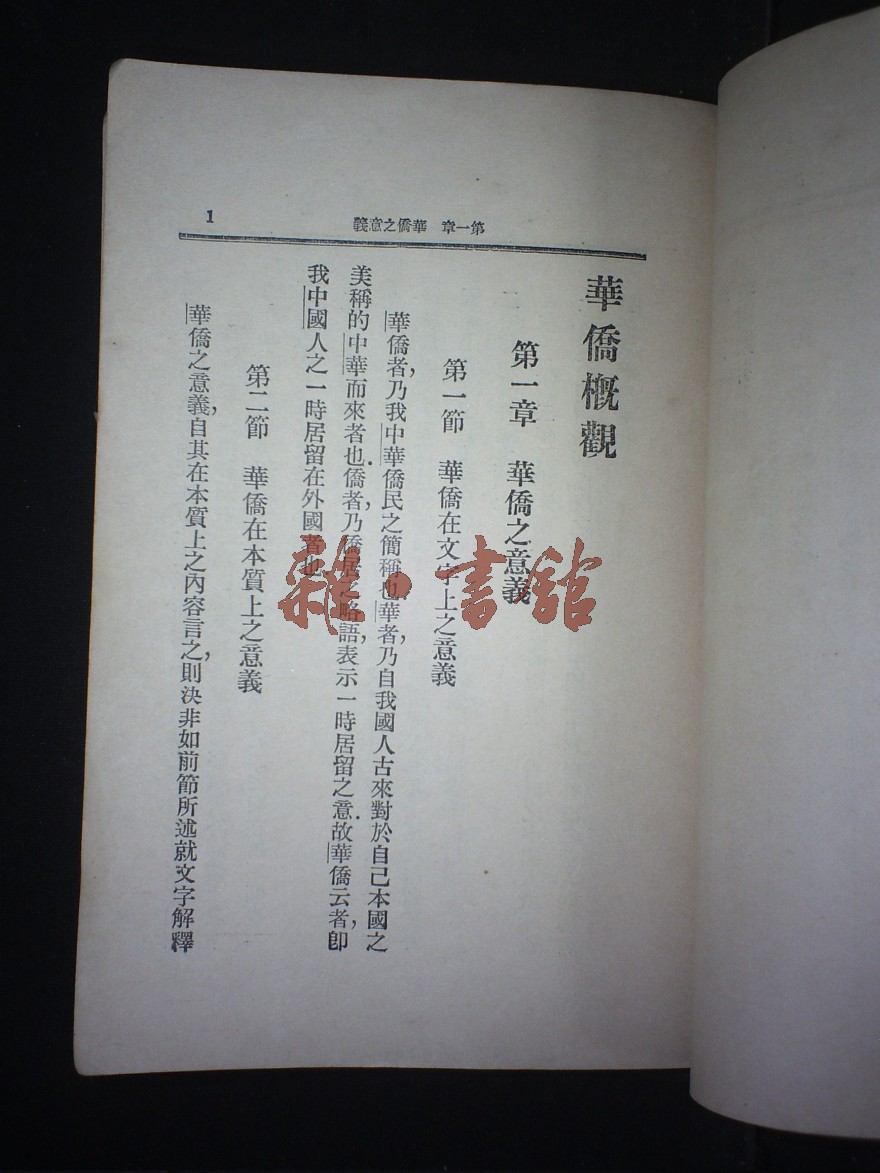 第一章　華僑之意義
1
華僑概觀
第一章　華僑之意義
第一節　華僑在文字上之意義
華僑者，乃我中華僑民之簡稱也華者，乃自我國人古來對於自己本國之
美稱的中華而來者也．僑者，乃僑居之略語，表示一時居留之意．故華僑云者，卽
我中國人之一時居留在外國者也
第二節　華僑在本質上之意義
華僑之意義，自其在本質上之內容言之，則決非如前節所述就文字解釋
雜·書館